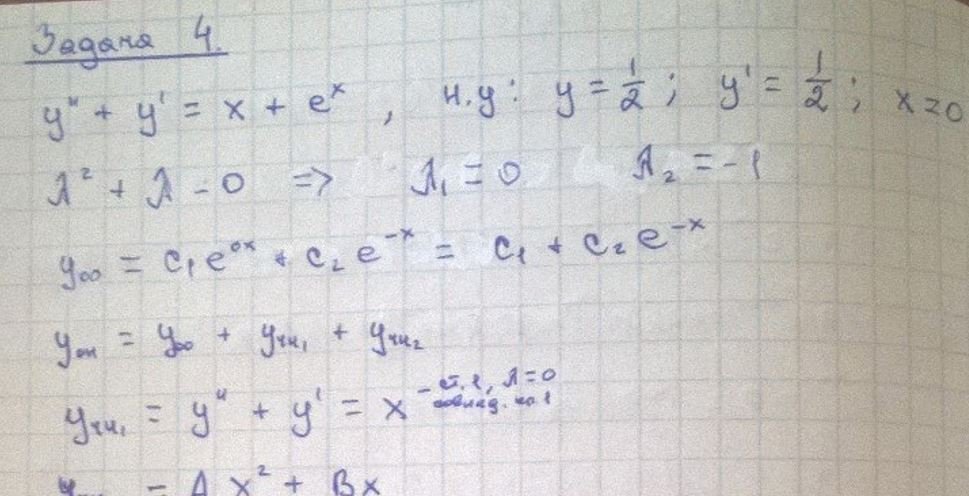 Задача 4.
y'' + y' = x + eˣ, н.у: y = 1/2; y' = 1/2; x = 0
λ² + λ = 0 => λ₁ = 0 λ₂ = -1
y₀₀ = c₁e⁰ˣ + c₂e⁻ˣ = c₁ + c₂e⁻ˣ
yон = y₀₀ + yчн₁ + yчн₂
yчн₁ = y'' + y' = x - ст. 1, λ = 0
совпад.
= Ax² + Bx